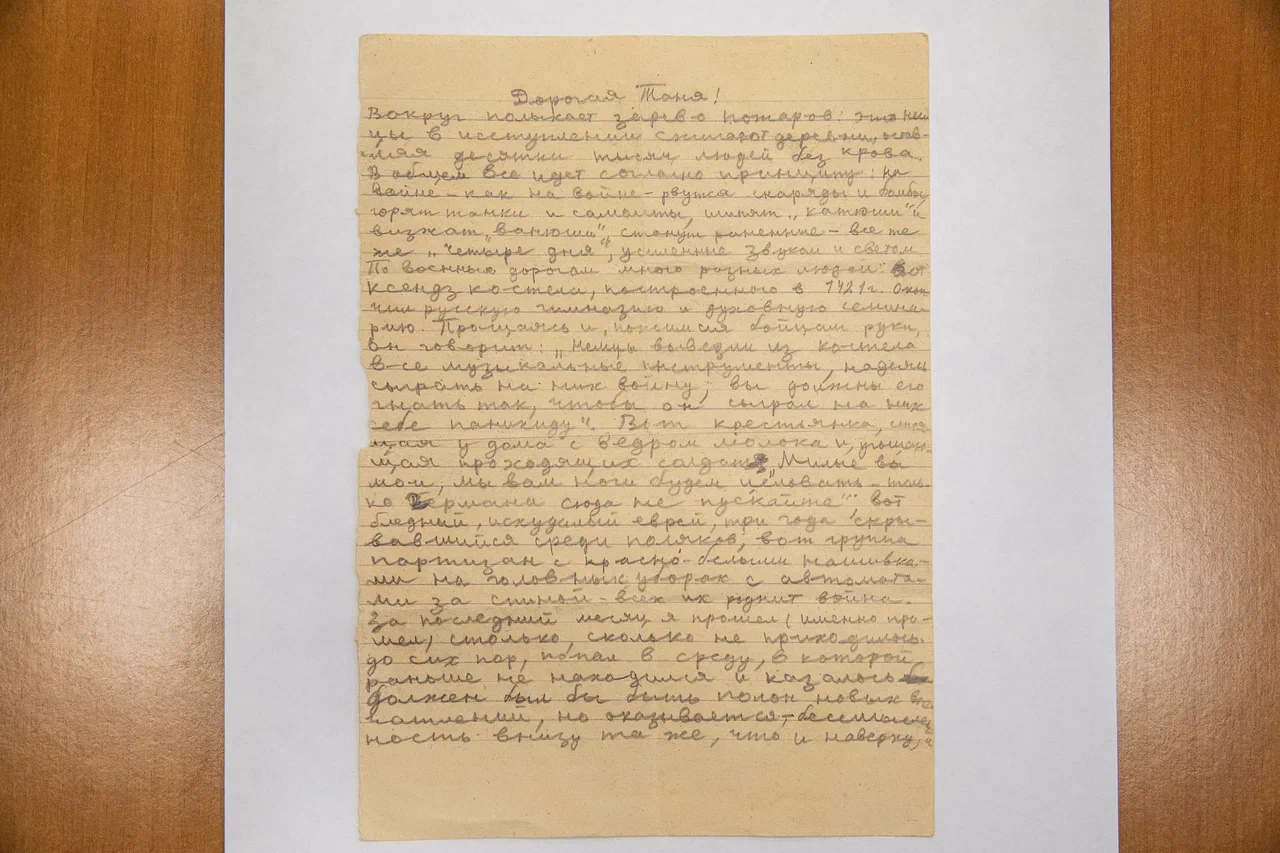 Дорогая Таня!
Вокруг полыхает зарево пожаров: это нем
цы в исступлении сжигают деревни, остав-
ляя десятки тысяч людей без крова.
В общем все идет согласно принципу: на
войне - как на войне - рвутся снаряды и бомбы,
горят танки и самолеты, шипят „катюши" и
визжат „ванюши", стонут раненные - все те
же „четыре дня", усиленные звуком и светом.
По военным дорогам много разных людей: вот
ксендз костела, построенного в 1421 г. Окон
чил русскую гимназию и духовную семина-
рию. Прощаясь и, пожимая бойцам руки,
он говорит: „немцы вывезли из костела
все музыкальные инструменты, надеясь
сыграть на них войну; вы должны его
гнать так, чтобы он сыграл на них
себе панихиду". Вот крестьянка, стоя
щая у дома с ведром молока и, угощаю
щая проходящих солдат: „Милые вы
мои, мы вам ноги будем целовать - толь-
ко германа сюда не пускайте"; вот
бледный, исхудалый еврей, три года скры-
вавшийся среди поляков; вот группа
партизан с красно-белыми нашивка-
ми на головных уборах с автомата-
ми за спиной - всех их роднит война.
За последний месяц я прошел (именно про-
шел) столько, сколько не приходилось
до сих пор, попал в среду, в которой
раньше не находился и казалось
должен был бы быть полон новых впе
чатлений, но оказывается, - бессмыслен
ность внизу та же, что и наверху, и